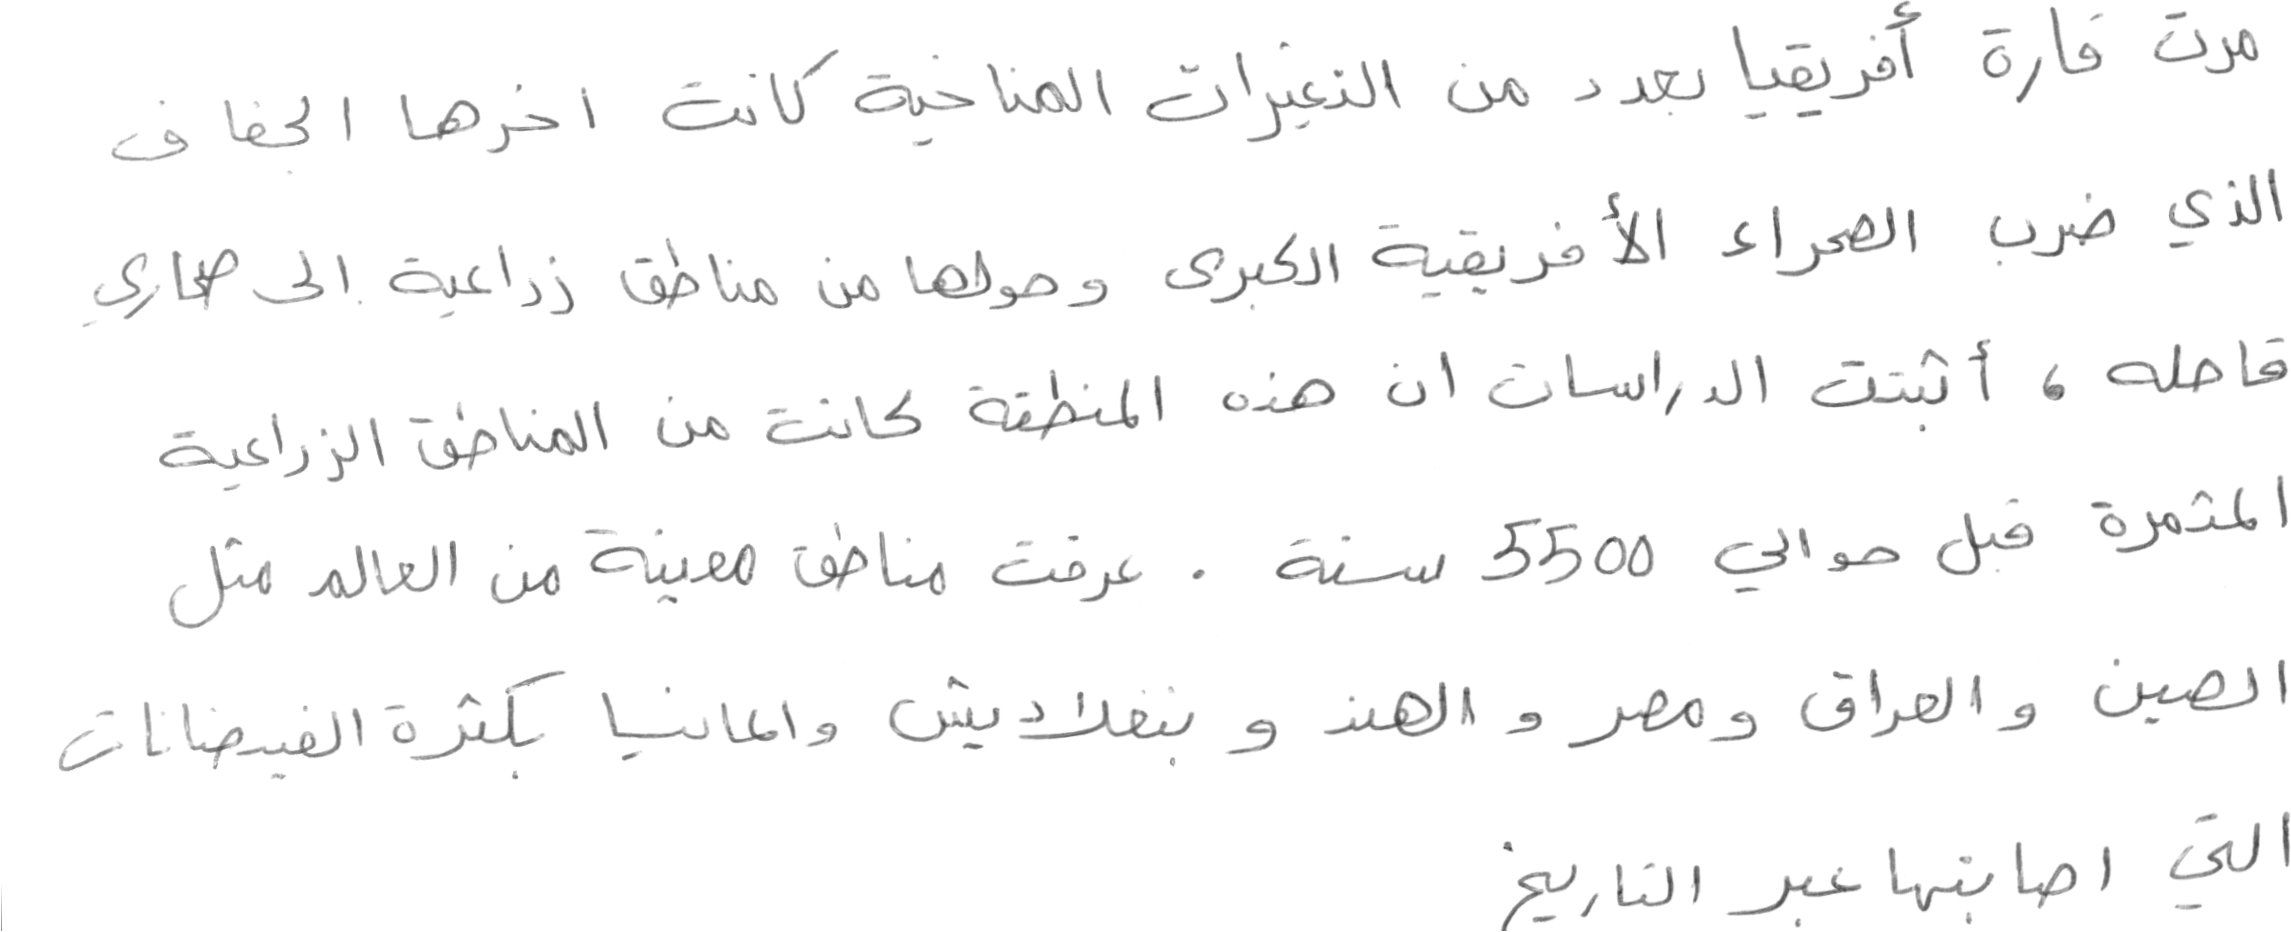 مرت قارة أفريقيا بعدد من التغيرات المناخية كانت اخرها الجفاف
الذي ضرب الصحراء الأفريقية الكبرى وحولها من مناطق زراعية الى صحاري
قاحله ، أثبتت الدراسات ان هذه المنطقة كانت من المناطق الزراعية
المثمرة قبل حوالي 5500 سنة . عرفت مناطق معينة من العالم مثل
الصين والعراق ومصر والهند و بنغلاديش والمانيا بكثرة الفيضانات
التي اصابتها عبر التاريخ